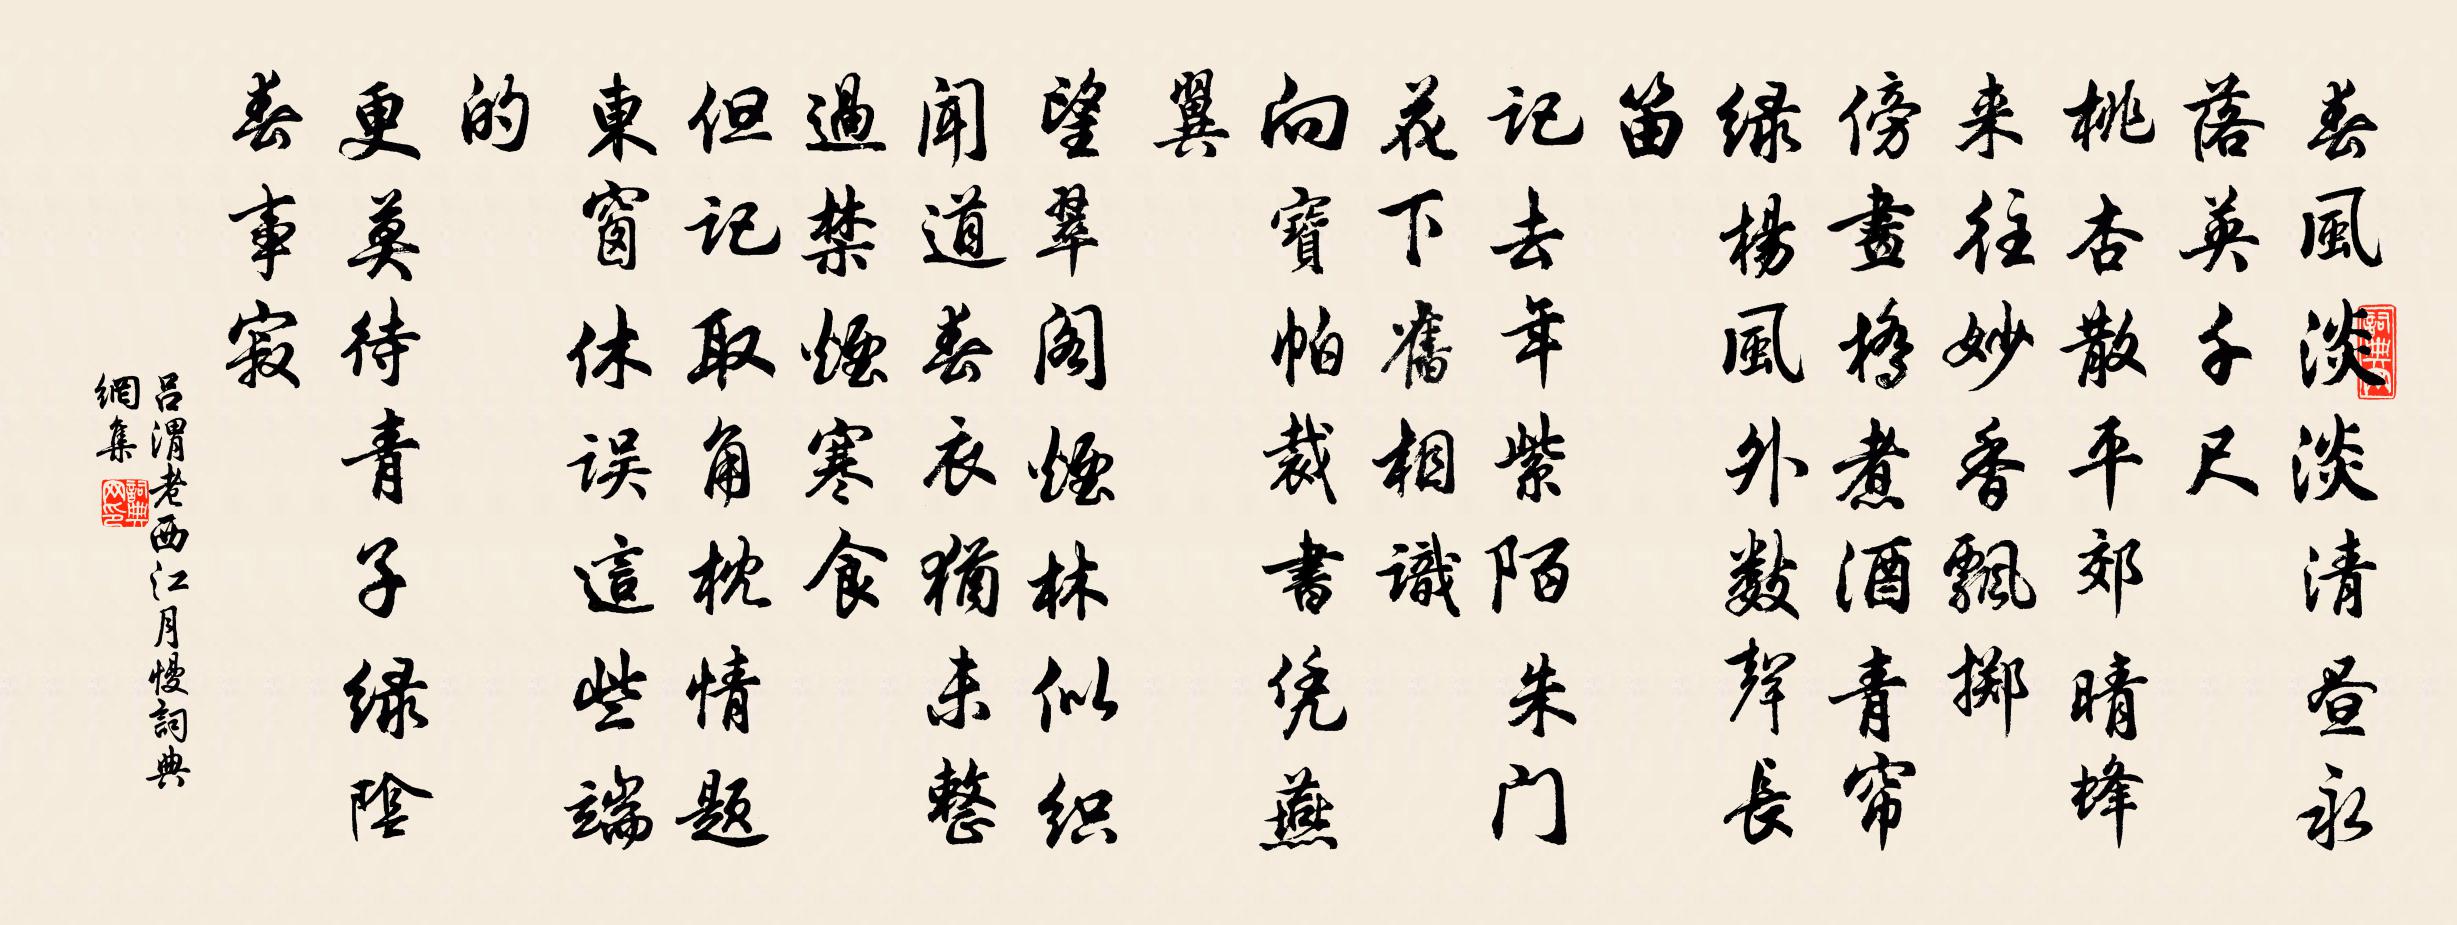 春風淡淡清昼永
落英千尺
桃杏散平郊晴蜂
来往妙香飄掷
傍畫橋煮酒青帘
绿楊風外数聲長
笛
记去年紫陌朱门
花下舊相識
向寶帕裁書凭燕
翼
望翠阁煙林似织
闻道春衣猶未整
過禁煙寒食
但记取角枕情题
東窗休误這些端
的
更莫待青子绿陰
春事寂
吕渭老西江月慢詞典
網集
詞典网
詞典网印